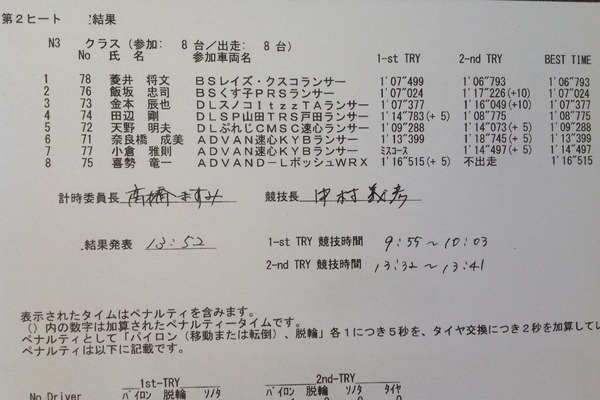 第２ヒート 結果
N3 クラス（参加： 8 台/出走： 8 台）
No 氏 名 参加車両名 1-st TRY 2-nd TRY BEST TIME
1 78 菱井 将文 ＢＳレイズ・クスコランサー 1'07"499 1'06"793 1'06"793
2 76 飯坂 忠司 ＢＳくす子ＰＲＳランサー 1'07"024 1'17"226(+10) 1'07"024
3 73 金本 辰也 ＤＬスノコＩｔｚｚＴＡランサー 1'07"377 1'16"049(+10) 1'07"377
4 74 田辺 剛 ＤＬＳＰ山田ＴＲＳ戸田ランサー 1'14"783(+ 5) 1'08"775 1'08"775
5 72 天野 明夫 ＤＬぷれじＣＭＳＣ速心ランサー 1'09"288 1'14"073(+ 5) 1'09"288
6 71 奈良橋 成美 ＡＤＶＡＮ速心ＫＹＢランサー 1'13"399 1'18"745(+ 5) 1'13"399
7 77 小倉 雅則 ＡＤＶＡＮ速心ＫＹＢランサー ﾐｽｺｰｽ 1'14"497(+ 5) 1'14"497
8 75 喜勢 竜一 ＡＤＶＡＮＤ－ＬボッシュＷＲＸ 1'16"515(+ 5) 不出走 1'16"515
計時委員長 高橋ますみ 競技長 中村義彦
結果発表 13:52 1-st TRY 競技時間 9:55～10:03
2-nd TRY 競技時間 13:32～13:41
表示されたタイムはペナルティを含みます。
（）内の数字は加算されたペナルティータイムです。
ペナルティとして「パイロン（移動または転倒）、脱輪」各１につき５秒を、タイヤ交換につき２秒を加算してい
ペナルティは以下に記載です。
1st-TRY 2nd-TRY
No Driver ﾊﾟｲﾛﾝ 脱輪 ｿﾉﾀ ﾊﾟｲﾛﾝ 脱輪 ｿﾉﾀ ﾀｲﾔ